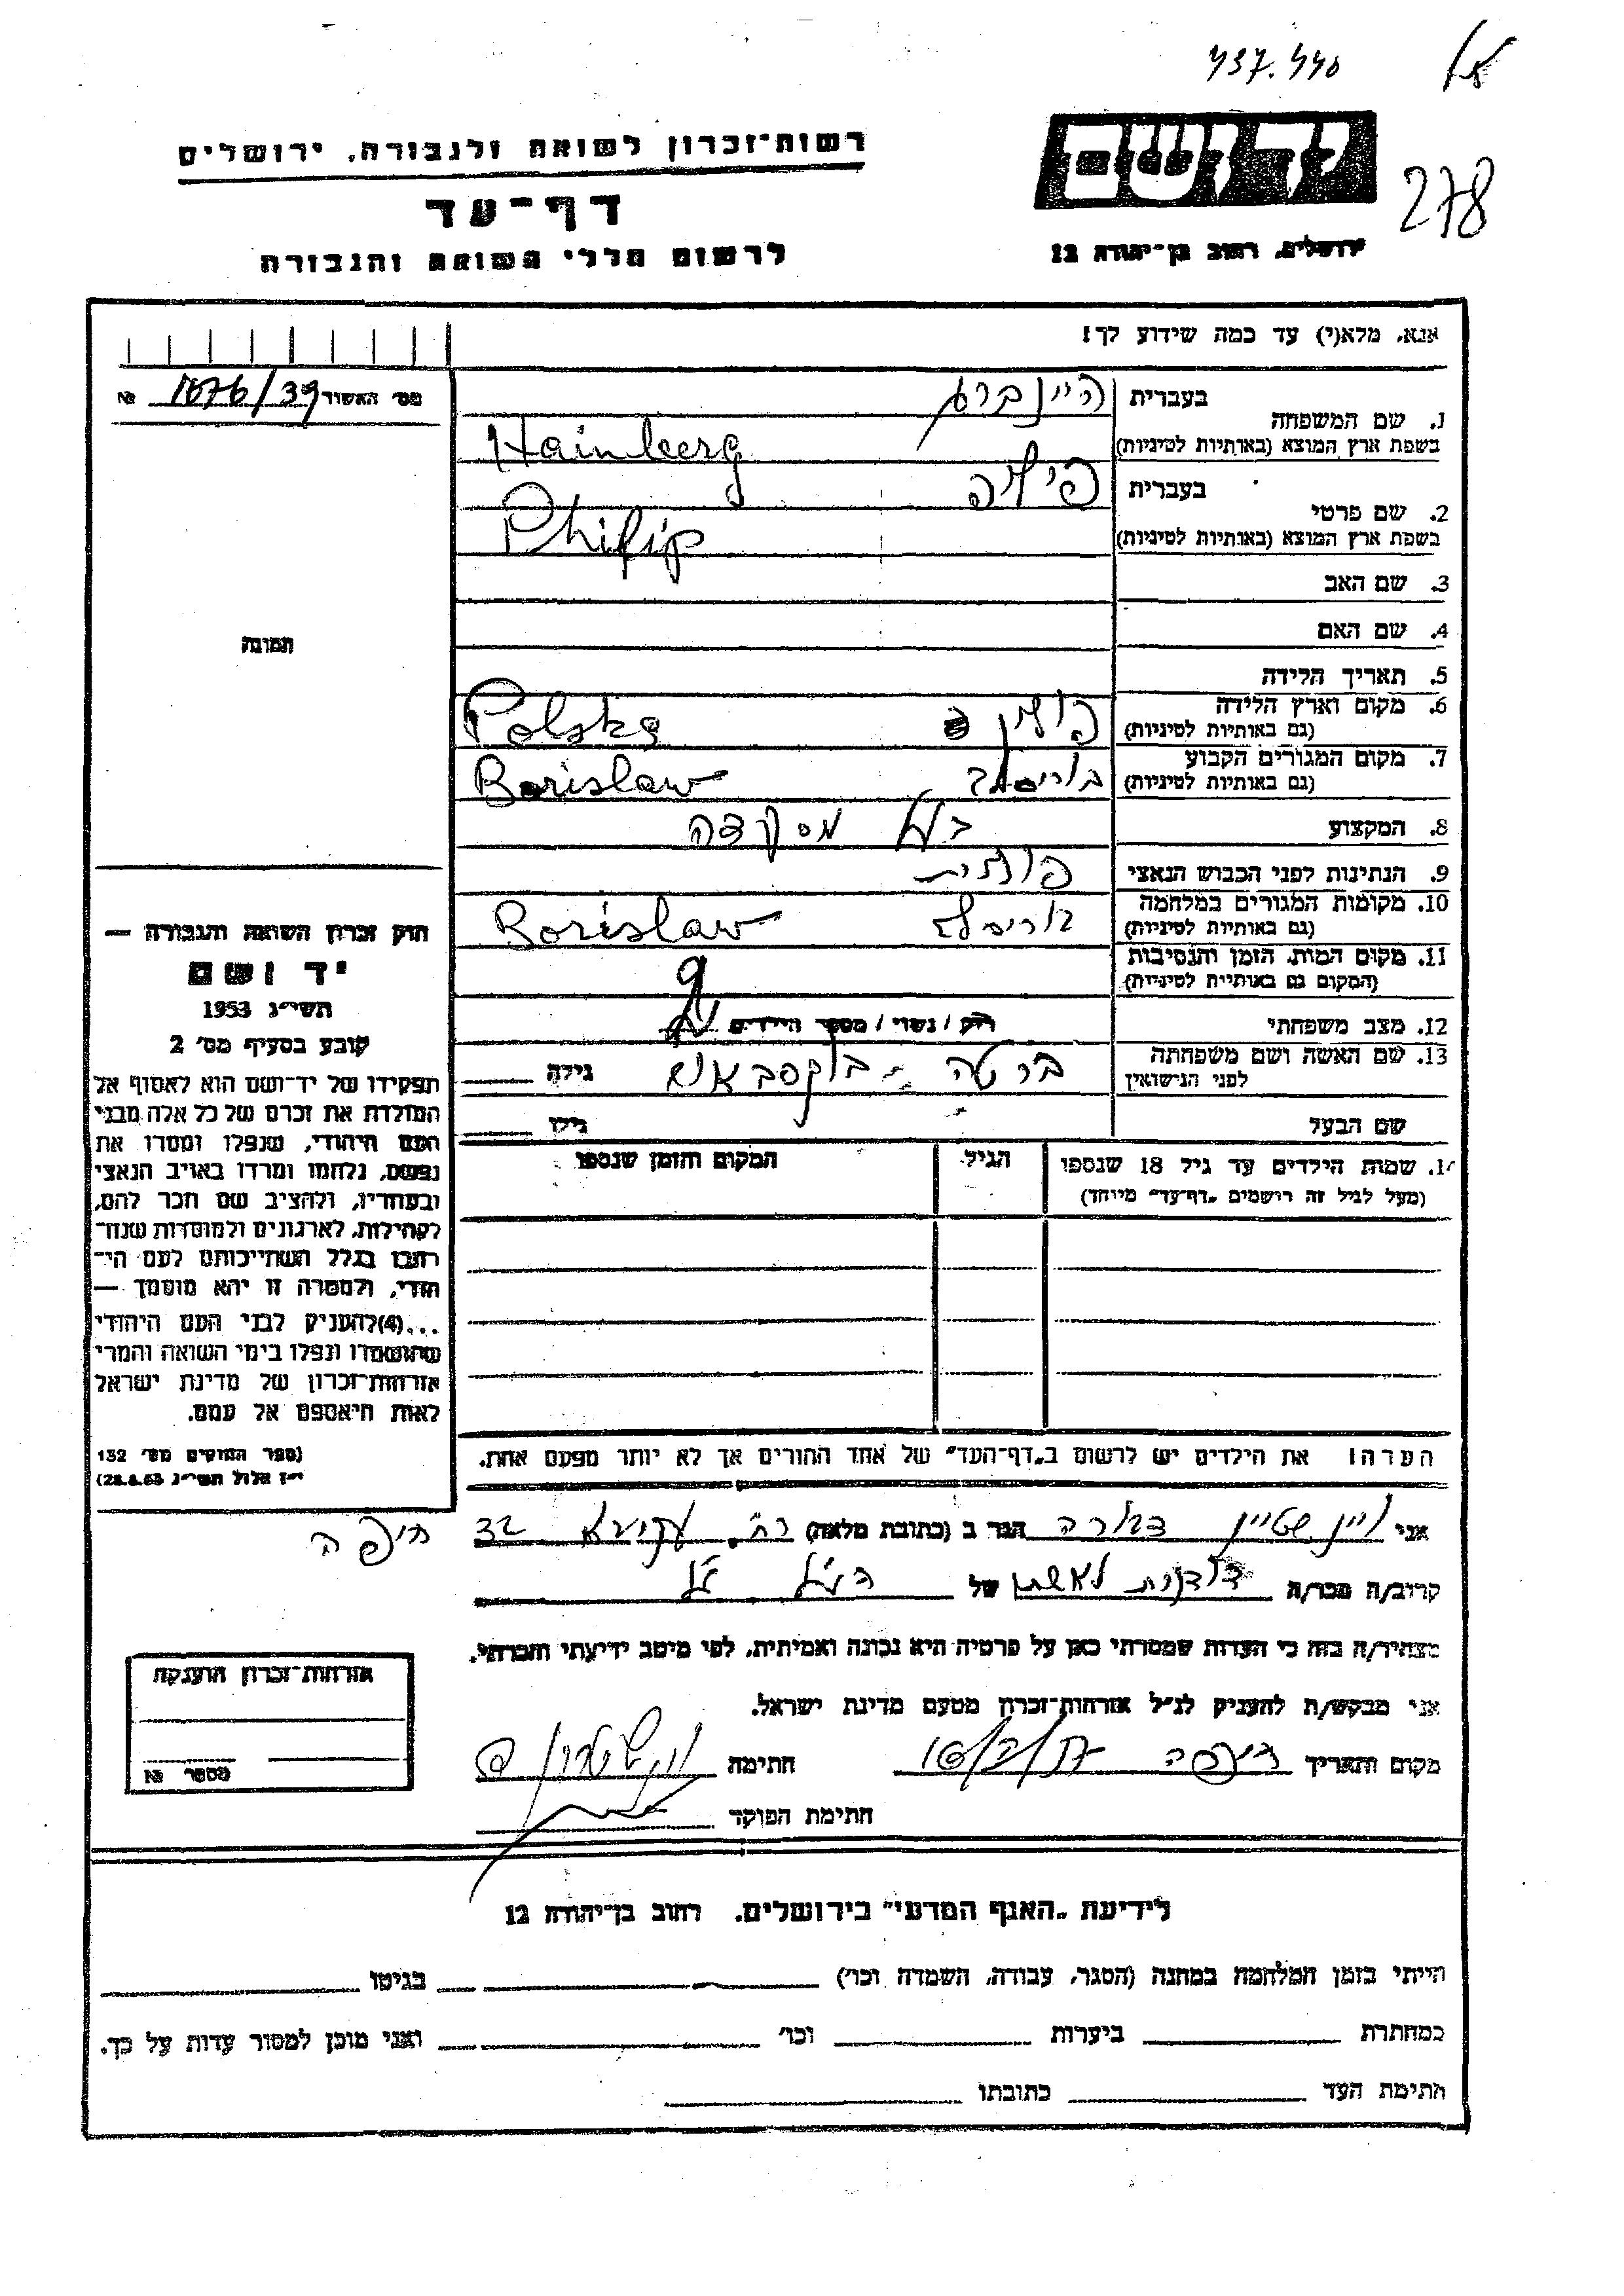 437.440
278
יד ושם
ירושלים, רחוב בן־יהודה 12
רשות־זכרון לשואה ולגבורה, ירושלים
דף־עד
לרשום חללי השואה והגבורה
אנא, מלא(י) עד כמה שידוע לך!
מס׳ האשור 1676/39 №
1. שם המשפחה
בעברית היינברג
בשפת ארץ המוצא (באותיות לטיניות) Hainberg
2. שם פרטי
בעברית פיליפ
בשפת ארץ המוצא (באותיות לטיניות) Philip
3. שם האב
4. שם האם
5. תאריך הלידה
6. מקום וארץ הלידה פולין Polska
(גם באותיות לטיניות)
7. מקום המגורים הקבוע בוריסלב Borislaw
(גם באותיות לטיניות)
8. המקצוע בעל מסעדה
9. הנתינות לפני הכבוש הנאצי פולנית
10. מקומות המגורים במלחמה בוריסלב Borislaw
(גם באותיות לטיניות)
11. מקום המות, הזמן והנסיבות
(המקום גם באותיות לטיניות)
12. מצב משפחתי רוק / נשוי / מספר הילדים
13. שם האשה ושם משפחתה ברטה - בוקסבאום גילה
לפני הנישואין
שם הבעל גילו
14. שמות הילדים עד גיל 18 שנספו הגיל המקום והזמן שנספו
(מעל לגיל זה רושמים „דף־עד” מיוחד)
תמונה
חוק זכרון השואה והגבורה —
יד ושם
תשי״ג 1953
קובע בסעיף מס׳ 2
תפקידו של יד־ושם הוא לאסוף אל
המולדת את זכרם של כל אלה מבני
העם היהודי, שנפלו ומסרו את
נפשם, נלחמו ומרדו באויב הנאצי
ובעוזריו, ולהציב שם וזכר להם,
לקהילות, לארגונים ולמוסדות שנח־
רבו בגלל השתייכותם לעם הי־
הודי, ולמטרה זו יהא מוסמך —
...(4)להעניק לבני העם היהודי
שהושמדו ונפלו בימי השואה והמרי
אזרחות־זכרון של מדינת ישראל
לאות היאספם אל עמם.
(ספר החוקים מס׳ 132
י״ז אלול תשי״ג 28.8.53)
הערה: את הילדים יש לרשום ב„דף־העד” של אחד ההורים אך לא יותר מפעם אחת.
אני ויינשטיין דבורה הגר ב (כתובת מלאה) רח׳ עקיבא 32 חיפה
קרוב/ה מכר/ה של הנ״ל
מצהיר/ה בזה כי העדות שמסרתי כאן על פרטיה היא נכונה ואמיתית, לפי מיטב ידיעתי והכרתי.
אני מבקש/ת להעניק לנ״ל אזרחות־זכרון מטעם מדינת ישראל.
מקום ותאריך חיפה חתימה
חתימת הפוקד
אזרחות־זכרון הוענקה
מספר №
לידיעת „האגף המדעי” בירושלים, רחוב בן־יהודה 12
הייתי בזמן המלחמה במחנה (הסגר, עבודה, השמדה וכו׳) בגיטו
במחתרת ביערות וכו׳ ואני מוכן למסור עדות על כך.
חתימת העד כתובתו